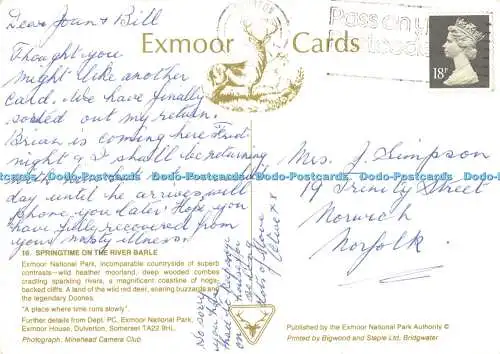 Dear Joan & Bill
Thought you
might like another
card. We have finally
sorted out my return.
Brian is coming here Frid
night & I shall be returning
with him
day until he arrives will
phone you later. Hope you
have fully recovered from
your nasty illness.
Exmoor Cards
Pass on y
18P
Mrs. J. Simpson
19 Trinity Street
Norwich
Norfolk.
Dodo-Postcards Dodo-Postcards Dodo-Postcards Dodo-Postcards Dodo-Postcards Dodo-Postcards Dodo-Postcards
www.Dodo-Postcards.com
16. SPRINGTIME ON THE RIVER BARLE
Exmoor National Park, incomparable countryside of superb
contrasts—wild heather moorland, deep wooded combes
cradling sparkling rivers, a magnificent coastline of hogs-
backed cliffs. A land of the wild red deer, soaring buzzards and
the legendary Doones.
"A place where time runs slowly".
Further details from Dept. PC, Exmoor National Park,
Exmoor House, Dulverton, Somerset TA22 9HL.
Photograph: Minehead Camera Club
So sorry
you had
on
Saturday
Lots of love
Published by the Exmoor National Park Authority ©
Printed by Bigwood and Staple Ltd, Bridgwater